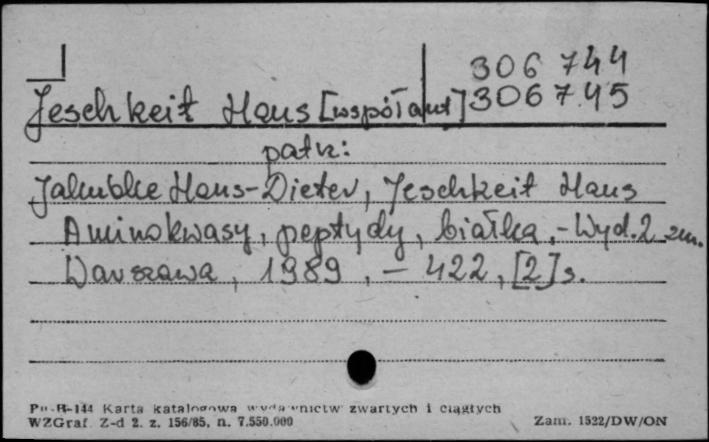 306 744
Jeschkeit Hans [współaut] 306 745
patrz:
Jakubke Hans-Dieter, Jeschkeit Hans
Aminokwasy, peptydy, białka.-Wyd.2 zm.
Warszawa, 1989, - 422, [2]s.
Pu-B-144 Karta katalogowa wydawnictw zwartych i ciągłych
WZGraf. Z-d 2. z. 156/85, n. 7.550.000 Zam. 1522/DW/ON